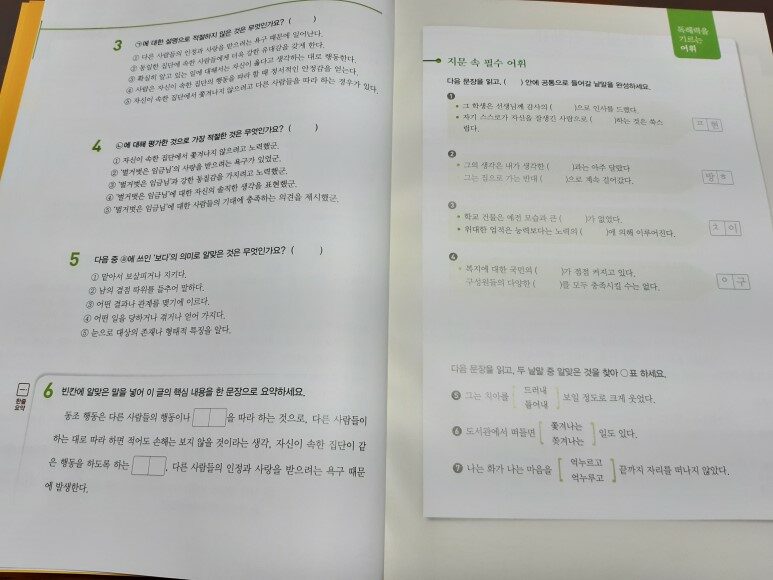 3 ㉠에 대한 설명으로 적절하지 않은 것은 무엇인가요? ( )
① 다른 사람들의 인정과 사랑을 받으려는 욕구 때문에 일어난다.
② 동일한 집단에 속한 사람들에게 더욱 강한 유대감을 갖게 한다.
③ 확실히 알고 있는 일에 대해서는 자신이 옳다고 생각하는 대로 행동한다.
④ 사람은 자신이 속한 집단의 행동을 따라 할 때 정서적인 안정감을 얻는다.
⑤ 자신이 속한 집단에서 쫓겨나지 않으려고 다른 사람들을 따라 하는 경우가 있다.
4 ㉡에 대해 평가한 것으로 가장 적절한 것은 무엇인가요? ( )
① 자신이 속한 집단에서 쫓겨나지 않으려고 노력했군.
② '벌거벗은 임금님'의 사랑을 받으려는 욕구가 있었군.
③ '벌거벗은 임금님'과 강한 동질감을 가지려고 노력했군.
④ '벌거벗은 임금님'에 대한 자신의 솔직한 생각을 표현했군.
⑤ '벌거벗은 임금님'에 대한 사람들의 기대에 충족하는 의견을 제시했군.
5 다음 중 ⓐ에 쓰인 '보다'의 의미로 알맞은 것은 무엇인가요? ( )
① 맡아서 보살피거나 지키다.
② 남의 결점 따위를 들추어 말하다.
③ 어떤 결과나 관계를 맺기에 이르다.
④ 어떤 일을 당하거나 겪거나 얻어 가지다.
⑤ 눈으로 대상의 존재나 형태적 특징을 알다.
한줄
요약
6 빈칸에 알맞은 말을 넣어 이 글의 핵심 내용을 한 문장으로 요약하세요.
동조 행동은 다른 사람들의 행동이나 을 따라 하는 것으로, 다른 사람들이
하는 대로 따라 하면 적어도 손해는 보지 않을 것이라는 생각, 자신이 속한 집단이 같
은 행동을 하도록 하는 , 다른 사람들의 인정과 사랑을 받으려는 욕구 때문
에 발생한다.
독해력을
기르는
어휘
지문 속 필수 어휘
다음 문장을 읽고, ( ) 안에 공통으로 들어갈 낱말을 완성하세요.
❶
• 그 학생은 선생님께 감사의 ( )으로 인사를 드렸다.
• 자기 스스로가 자신을 잘생긴 사람으로 ( )하는 것은 쑥스
럽다.
ㅍ 현
❷
• 그의 생각은 내가 생각한 ( )과는 아주 달랐다
그는 집으로 가는 반대 ( )으로 계속 걸어갔다.
방 ㅎ
❸
• 학교 건물은 예전 모습과 큰 ( )가 없었다.
• 위대한 업적은 능력보다는 노력의 ( )에 의해 이루어진다.
ㅊ 이
❹
• 복지에 대한 국민의 ( )가 점점 커지고 있다.
구성원들의 다양한 ( )를 모두 충족시킬 수는 없다.
ㅇ 구
다음 문장을 읽고, 두 낱말 중 알맞은 것을 찾아 ○표 하세요.
❺ 그는 치아를 [ 드러내 / 들어내 ] 보일 정도로 크게 웃었다.
❻ 도서관에서 떠들면 [ 쫓겨나는 / 쫒겨나는 ] 일도 있다.
❼ 나는 화가 나는 마음을 [ 억누르고 / 억누루고 ] 끝까지 자리를 떠나지 않았다.